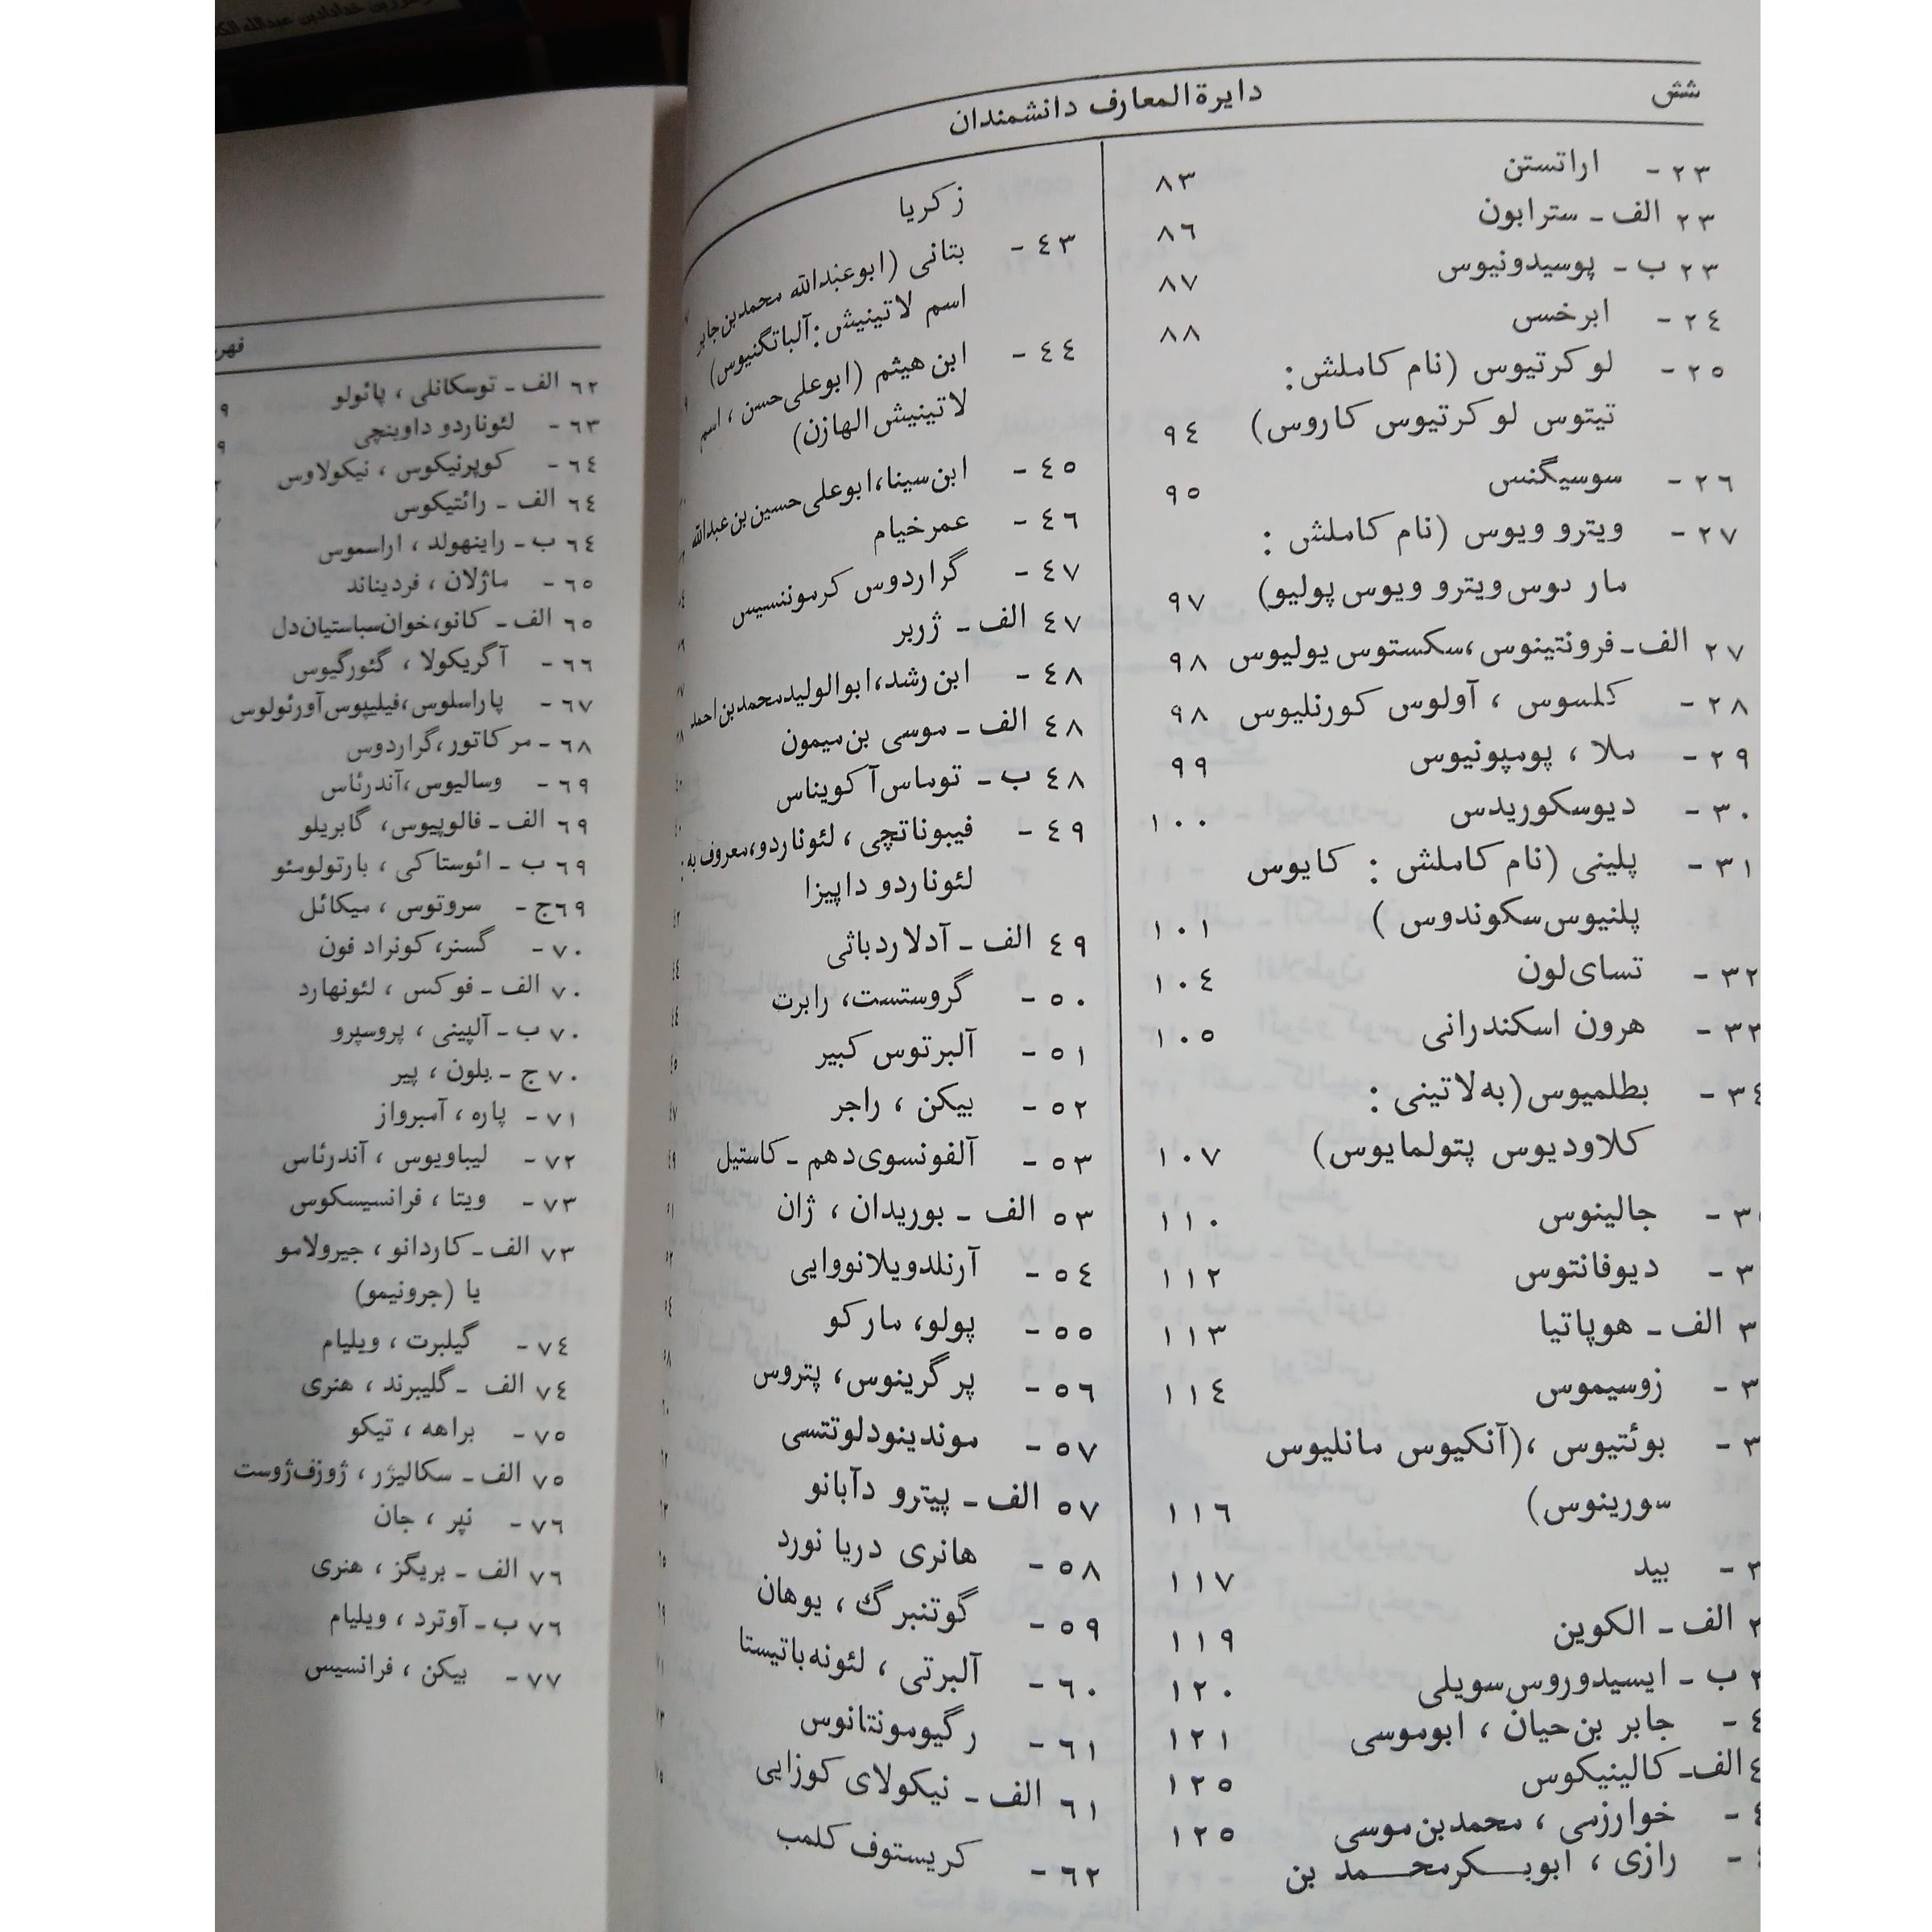 شش
دایرةالمعارف دانشمندان
۲۳ - اراتستن ۸۳
۲۳ الف - سترابون ۸٦
۲۳ ب - پوسیدونیوس ۸۷
۲٤ - ابرخس ۸۸
۲٥ - لوکرتیوس (نام کاملش:
تیتوس لوکرتیوس کاروس) ۹٤
۲٦ - سوسیگنس ۹٥
۲۷ - ویترو ویوس (نام کاملش :
ویترو ویوس پولیو) ۹۷
۲۷ الف - فرونتینوس، سکستوس یولیوس ۹۸
۲۸ - کلسوس ، آولوس کورنلیوس ۹۸
۲۹ - ملا ، پومپونیوس ۹۹
۳۰ - دیوسکوریدس ۱۰۰
۳۱ - پلینی (نام کاملش : کایوس
پلنیوس سکوندوس ) ۱۰۱
۳۲ - تسای لون ۱۰٤
۳۳ - هرون اسکندرانی ۱۰٥
۳٤ - بطلمیوس (به لاتینی :
کلاودیوس پتولمایوس) ۱۰۷
- جالینوس ۱۱۰
- دیوفانتوس ۱۱۲
الف - هوپاتیا ۱۱۳
- زوسیموس ۱۱٤
- بوئتیوس ،(آنکیوس مانلیوس
سورینوس) ۱۱٦
- بید ۱۱۷
الف - الکوین ۱۱۹
ب - ایسیدوروس سویلی ۱۲۰
- جابر بن حیان ، ابوموسی ۱۲۱
الف - کالینیکوس ۱۲٥
- خوارزمی ، محمد بن موسی ۱۲٥
- رازی ، ابوبکر محمد بن
زکریا
٤۳ - بتانی (ابوعبدالله محمد بن جابر
اسم لاتینیش: آلباتگنیوس)
٤٤ - ابن هیثم (ابوعلی حسن ، اسم
لاتینیش الهازن)
٤٥ - ابن سینا، ابوعلی حسین بن عبدالله
٤٦ - عمر خیام
٤۷ - گراردوس کرموننسیس
٤۷ الف - ژربر
٤۸ - ابن رشد، ابوالولید محمد بن احمد
٤۸ الف - موسی بن میمون
٤۸ ب - توماس آکویناس
٤۹ - فیبوناتچی ، لئوناردو، معروف به :
لئوناردو داپیزا
٤۹ الف - آدلارد باثی
٥۰ - گروستست، رابرت
٥۱ - آلبرتوس کبیر
٥۲ - بیکن ، راجر
٥۳ - آلفونسوی دهم - کاستیل
٥۳ الف - بوریدان ، ژان
٥٤ - آرنلدویلانووایی
٥٥ - پولو، مارکو
٥٦ - پرگرینوس، پتروس
٥۷ - موندینودلوتتسی
٥۷ الف - پیترو دآبانو
٥۸ - هانری دریا نورد
٥۹ - گوتنبرگ ، یوهان
٦۰ - آلبرتی ، لئونه باتیستا
٦۱ - رگیومونتانوس
٦۱ الف - نیکولای کوزایی
٦۲ - کریستوف کلمب
٦۲ الف - توسکانلی ، پائولو
٦۳ - لئوناردو داوینچی
٦٤ - کوپرنیکوس ، نیکولاوس
٦٤ الف - رائتیکوس
٦٤ ب - راینهولد ، اراسموس
٦٥ - ماژلان ، فردیناند
٦٥ الف - کانو، خوان سباستیان دل
٦٦ - آگریکولا ، گئورگیوس
٦۷ - پاراسلوس، فیلیپوس آورئولوس
٦۸ - مرکاتور، گراردوس
٦۹ - وسالیوس ، آندرئاس
٦۹ الف - فالوپیوس، گابریلو
٦۹ ب - ائوستاکی ، بارتولومئو
٦۹ج - سروتوس ، میکائل
۷۰ - گسنر، کونراد فون
۷۰ الف - فوکس ، لئونهارد
۷۰ ب - آلپینی ، پروسپرو
۷۰ ج - بلون ، پیر
۷۱ - پاره ، آمبرواز
۷۲ - لیباویوس ، آندرئاس
۷۳ - ویتا ، فرانسیسکوس
۷۳ الف - کاردانو ، جیرولامو
یا (جرونیمو)
۷٤ - گیلبرت ، ویلیام
۷٤ الف - گلیبرند ، هنری
۷٥ - براهه ، تیکو
۷٥ الف - سکالیژر ، ژوزف ژوست
۷٦ - نپر ، جان
۷٦ الف - بریگز ، هنری
۷٦ ب - آوترد ، ویلیام
۷۷ - بیکن ، فرانسیس